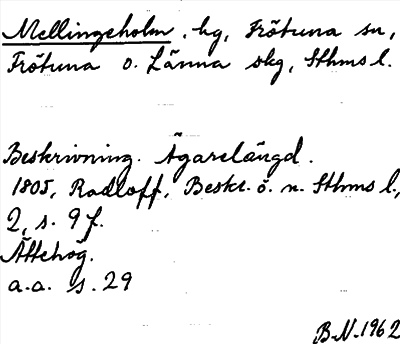 Mellingeholm, hg, Frötuna sn,
Frötuna o. Länna skg, Sthms l.
Beskrivning. Ägarelängd.
1805, Radloff, Beskr. ö. n. Sthms l.,
2, s. 9 f.
Ättehög.
a.a. s. 29
B.N. 1962